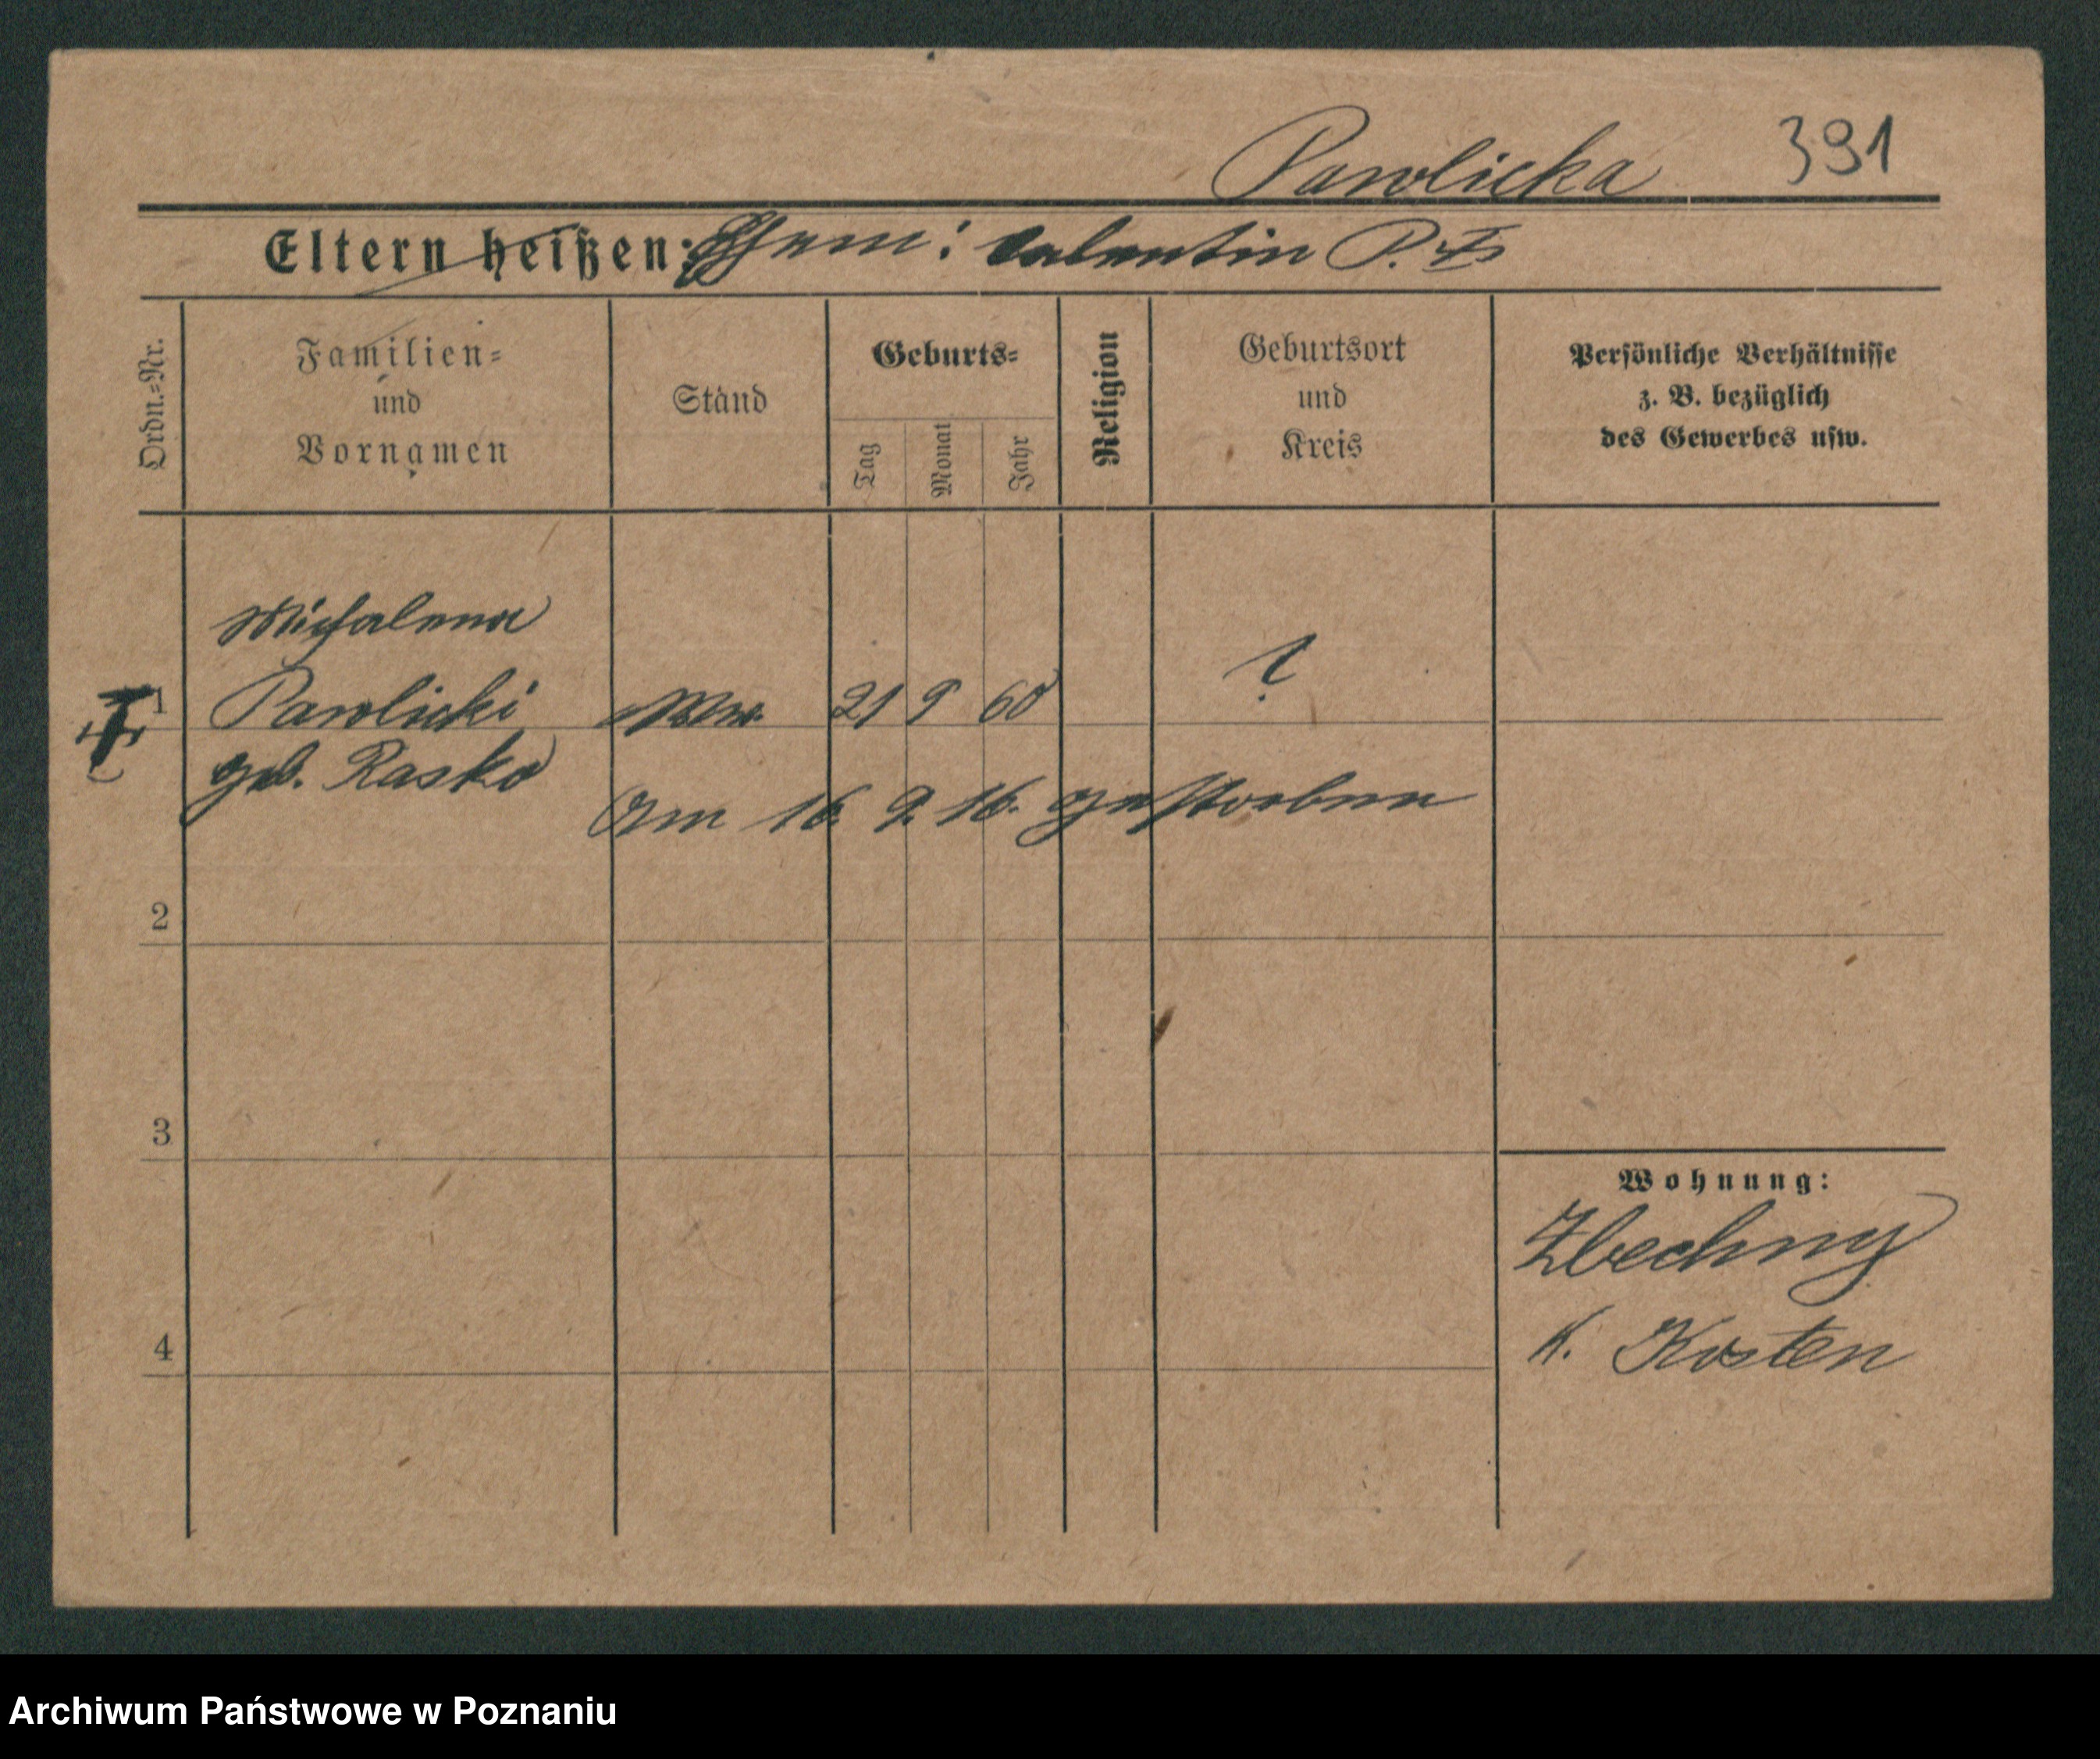 Pawlicka 391
Eltern heißen: Ehem: Valentin P.
Ordn.=Nr.
Familien=
und
Vornamen
Stand
Geburts=
Tag
Monat
Jahr
Religion
Geburtsort
und
Kreis
Persönliche Verhältnisse
z. B. bezüglich
des Gewerbes usw.
Michalena
1 Pawlicki Wwe. 21 9 60 ?
geb. Rasko
Am 16. 9. 16. gestorben
2
3
Wohnung:
Zbechny
4 K. Kosten
Archiwum Państwowe w Poznaniu